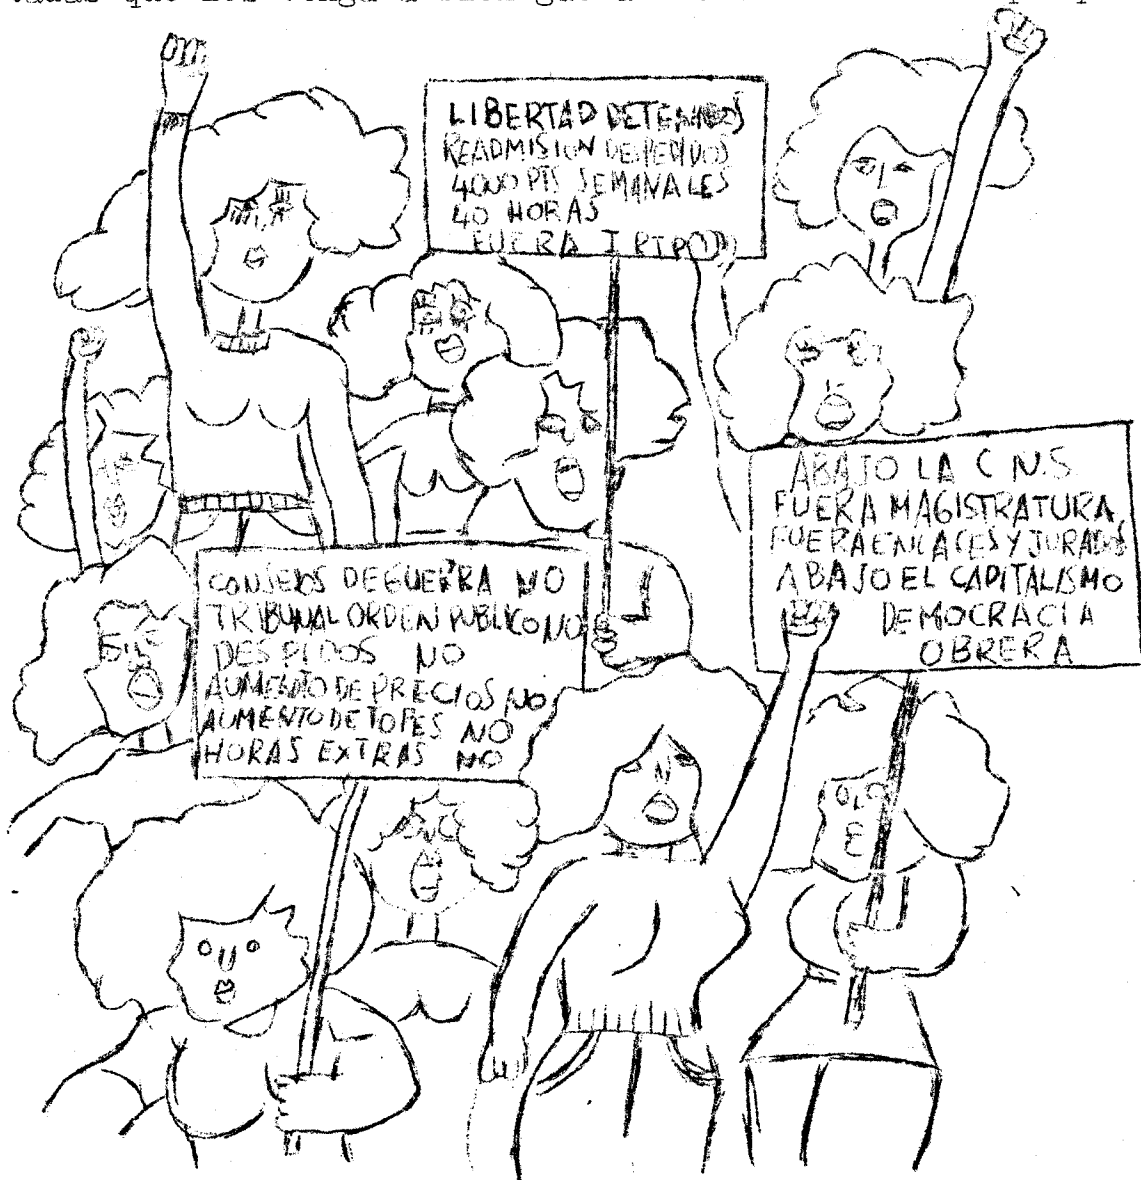 LIBERTAD DETENIDOS
READMISION DESPEDIDOS
4000 PTS SEMANALES
40 HORAS
FUERA I RTP
ABAJO LA C N.S.
FUERA MAGISTRATURA
FUERA ENLACES Y JURADOS
ABAJO EL CAPITALISMO
DEMOCRACIA
OBRERA
CONSEJOS DE GUERRA NO
TRIBUNAL ORDEN PUBLICO NO
DESPIDOS NO
AUMENTO DE PRECIOS NO
AUMENTO DE TOPES NO
HORAS EXTRAS NO